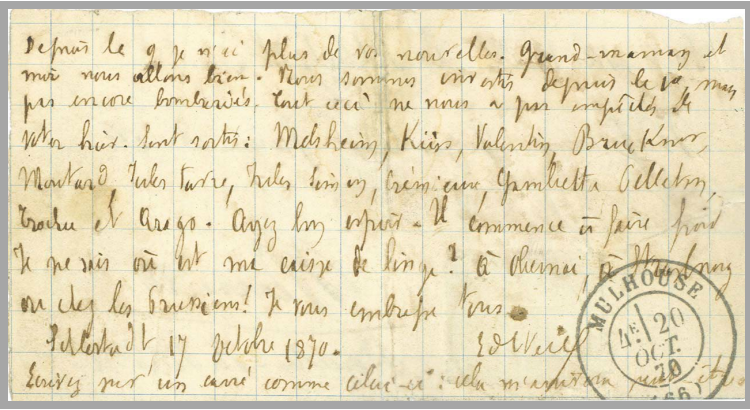 Depuis le 9 je n'ai plus de vos nouvelles. Grand-maman et
moi nous allons bien. Nous sommes investis depuis le mais
pas encore bombardés. Tout ceci ne nous a pas empêchés de
voter hier. Sont sortis: Melsheim, Küss, Valentin, Bruckner,
Moutard Jules Favre, Jules Simon, Crémieux, Gambetta Pelletan,
Trochu et Arago. Ayez bon espoir. Il commence à faire froid
Je ne sais où est ma caisse de linge? à Obernai, à Strasbourg
ou chez les Prussiens! Je vous embrasse tous
Schlestadt 17 octobre 1870. Ed Weill
Ecrivez sur un carré comme celui-ci: cela
MULHOUSE
4E 20
OCT.
70
(66)